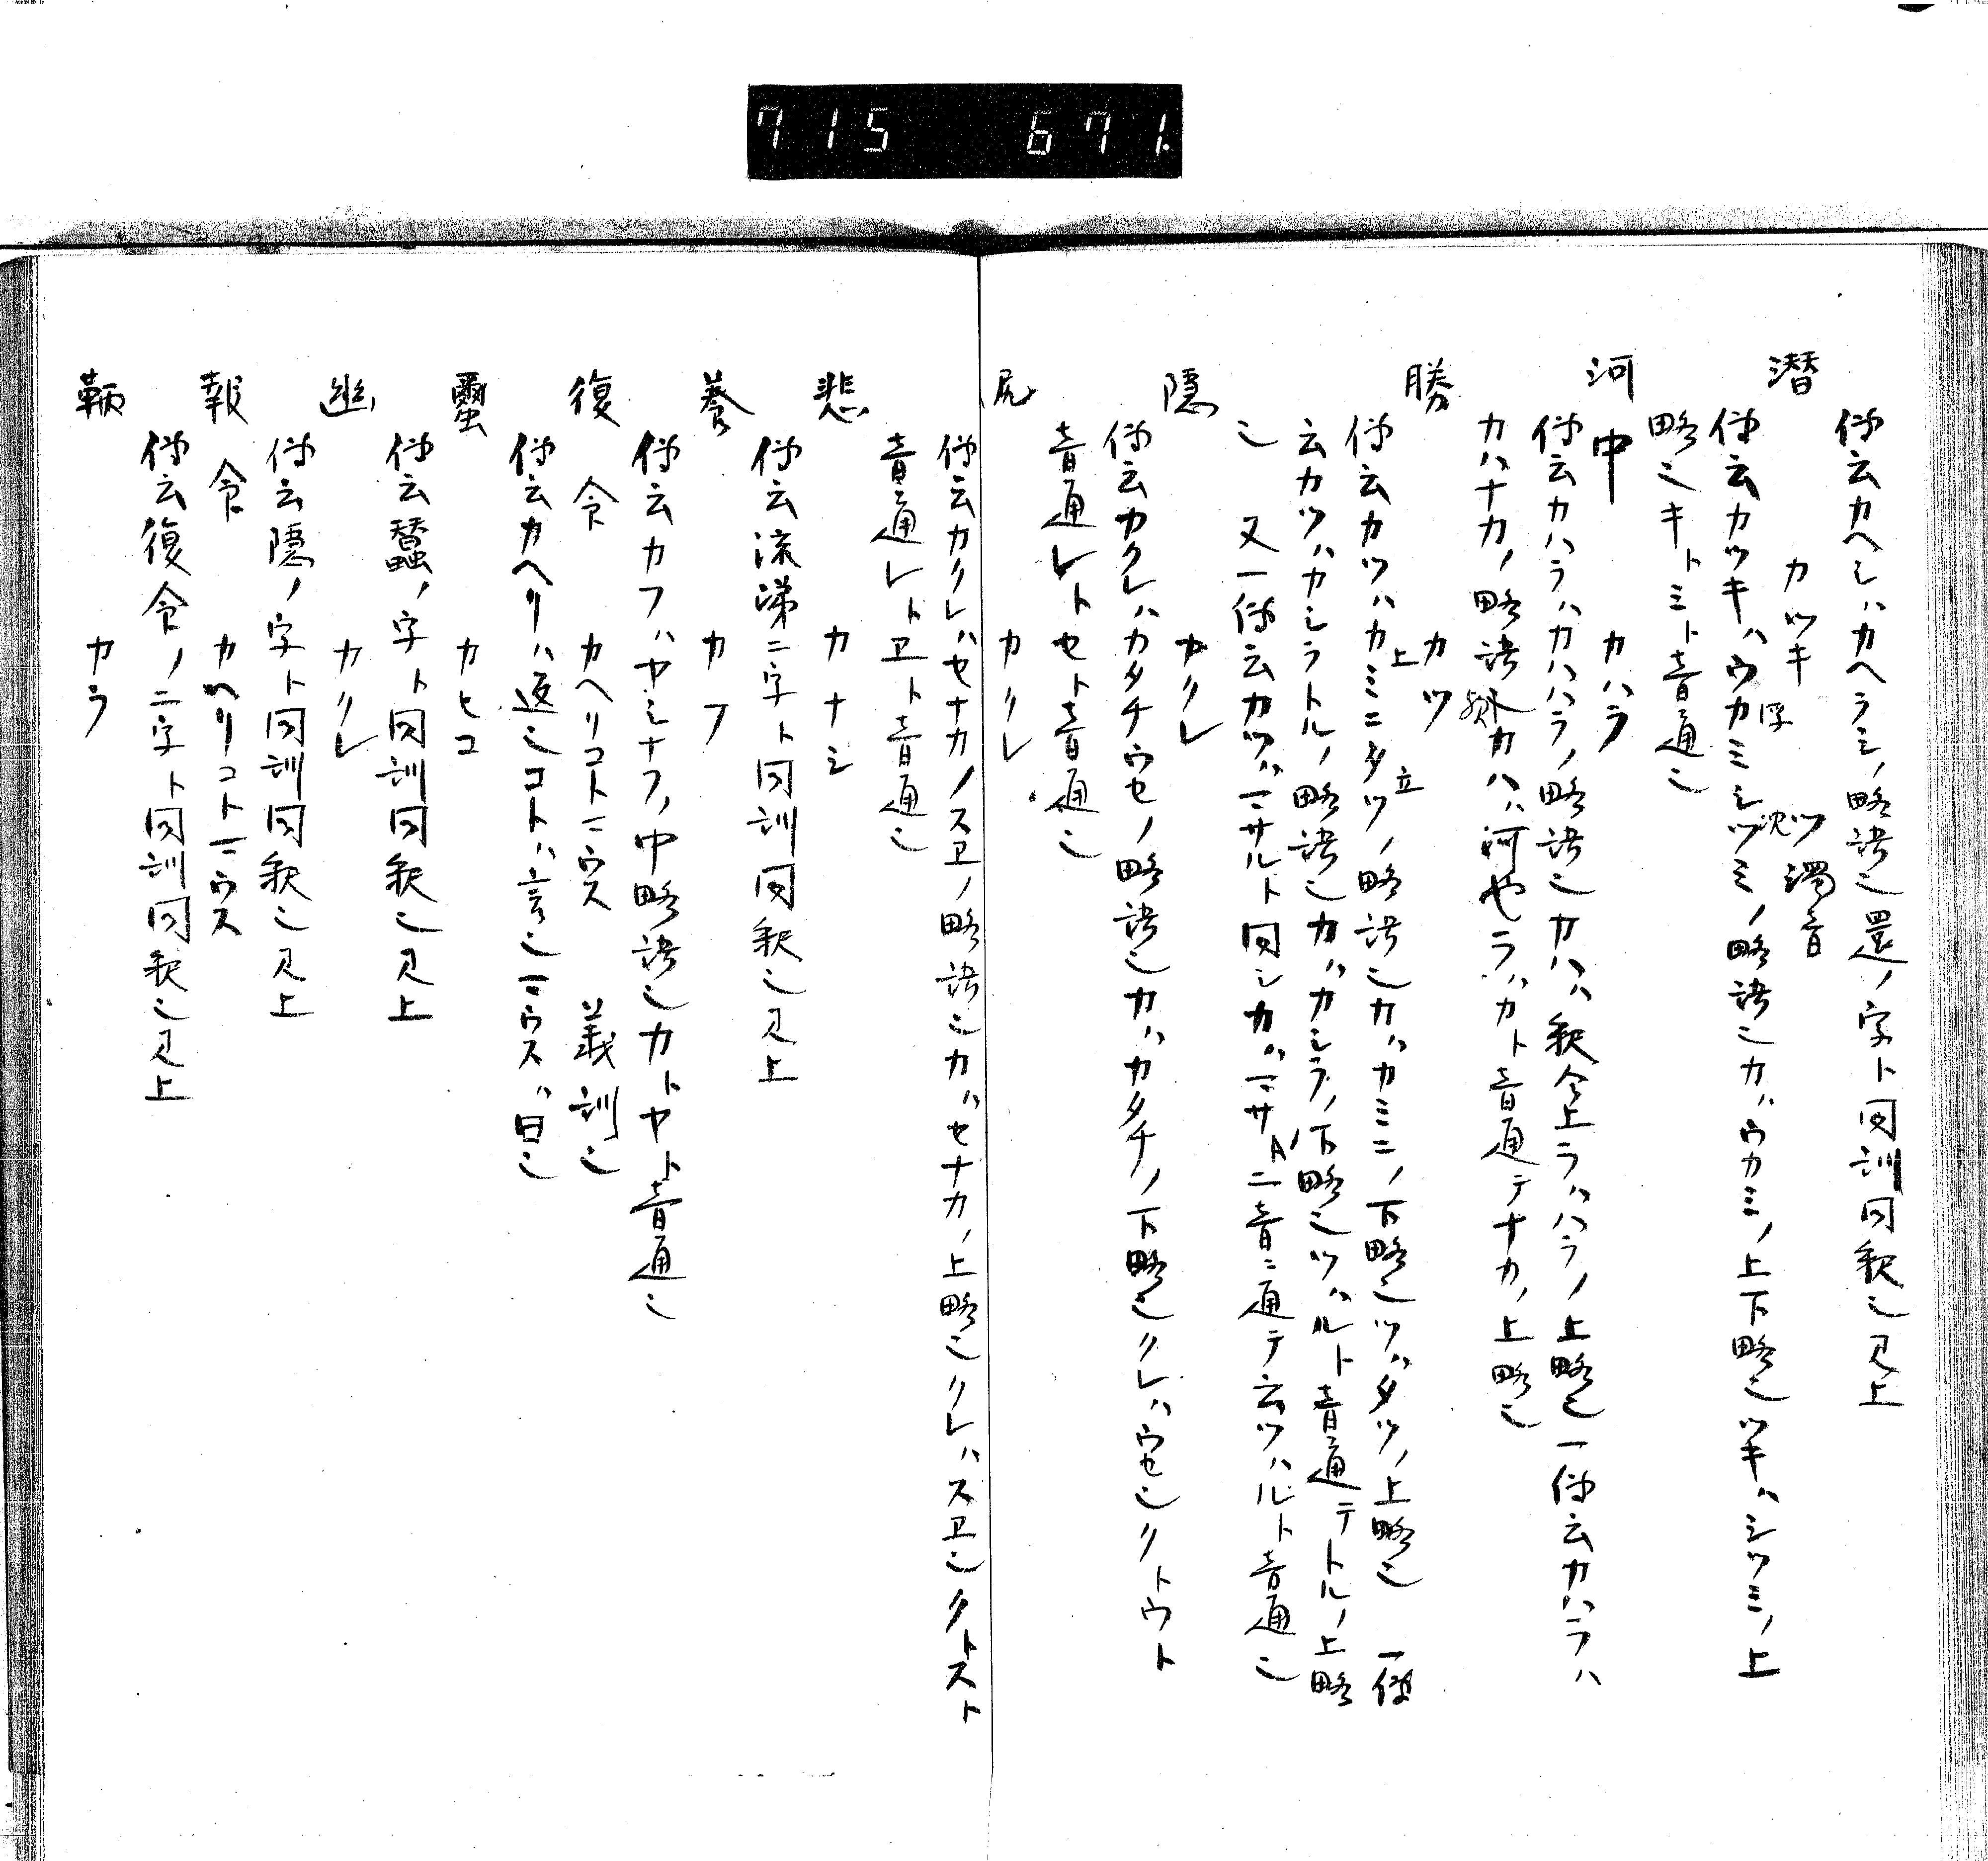 715 671.
傳云カヘシハカヘラシノ略語也還ノ字ト同訓同釈也見上
潜 カツキ ツ濁音
傳云カツキハウカミシツミノ略語也カハウカミノ上下略也ツキハシツミノ上
浮 沈
略也キトミト音通也
河中 カハラ
傳云カハラハカハハラノ略語也カハハ釈令上ラハハラノ上略也一傳云カハラハ
カハナカノ略語歟カハハ河也ラハカト音通テナカノ上略也
勝 カツ
傳云カツハカミニタツノ略語也カハカミニノ下略也ツハタツノ上略也 一傳
上 立
云カツハカシラトルノ略語也カハカシラノ下略也ツハルト音通テトルノ上略
也 又一傳云カツハマサルト同シカハマサノ二音ニ通テ云ツハルト音通也
隠 カクレ
傳云カクレハカタチウセノ略語也カハカタチノ下略也クレハウセ也クトウト
音通レトセト音通也
尻 カクレ
傳云カクレハセナカノスヱノ略語也カハセナカノ上略也クレハスヱ也クトスト
音通レトヱト音通也
悲 カナシ
傳云流涕二字ト同訓同釈也見上
養 カフ
傳云カフハヤシナフノ中略語也カトヤト音通也
復命 カヘリコトマウス 義訓也
傳云カヘリハ返也コトハ言也マウスハ曰也
蠶 カヒコ
傳云蠶ノ字ト同訓同釈也見上
幽 カクレ
傳云隠ノ字ト同訓同釈也見上
報命 カヘリコトマウス
傳云復命ノ二字ト同訓同釈也見上
カラ